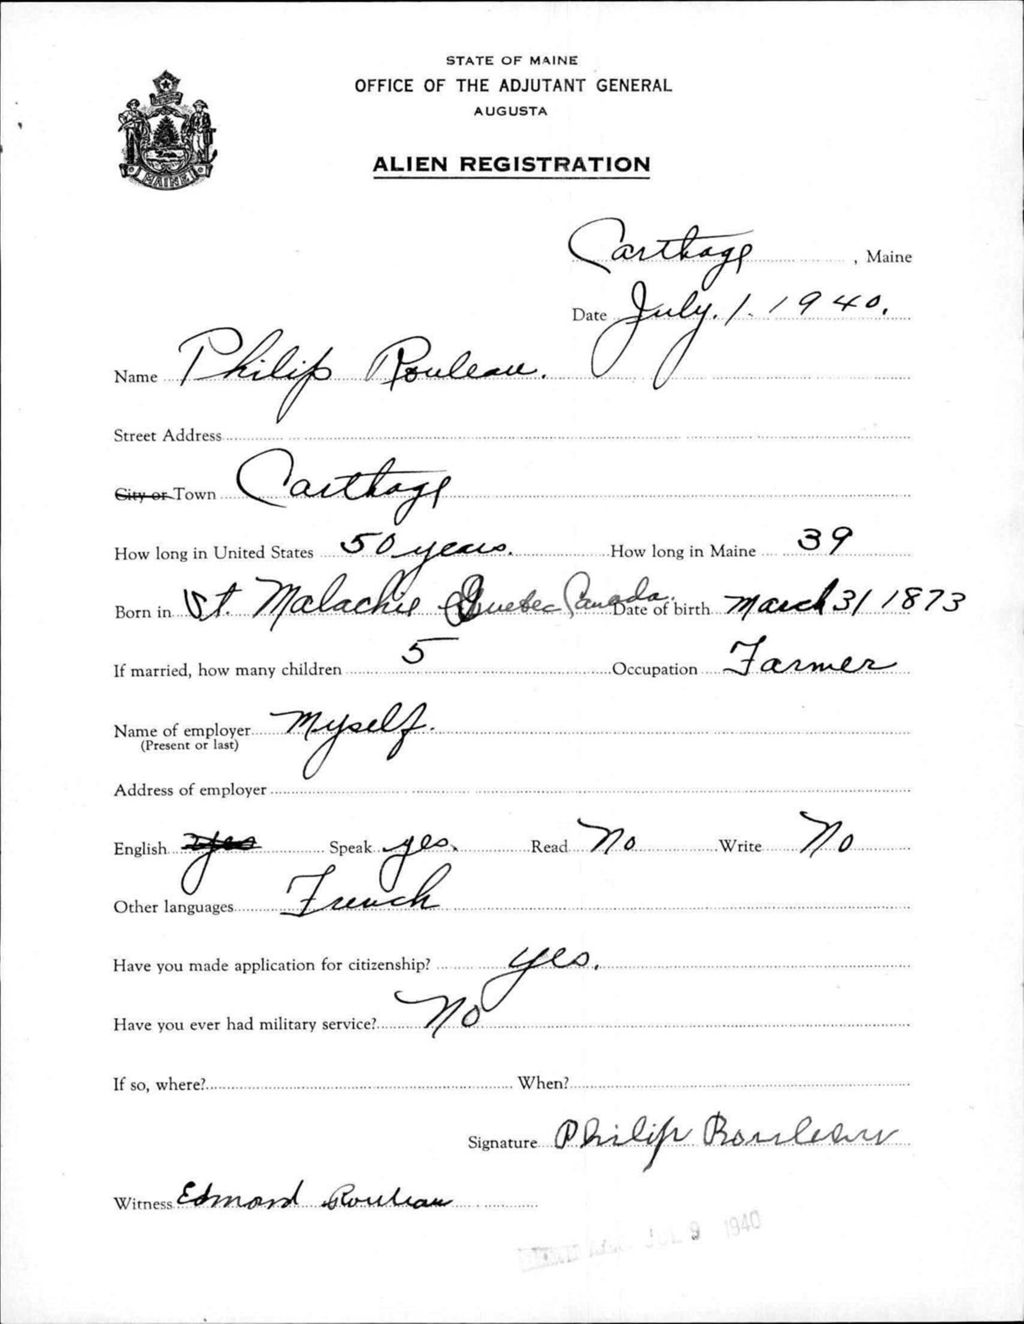 STATE OF MAINE
OFFICE OF THE ADJUTANT GENERAL
AUGUSTA
ALIEN REGISTRATION
MAINE
Carthage, Maine
Date July. 1. 1940.
Name Philip Rouleau.
Street Address
City or Town Carthage
How long in United States 50 years. How long in Maine 39
Born in St. Malachie Quebec Canada. Date of birth March 31 1873
If married, how many children 5 Occupation Farmer
Name of employer Myself.
(Present or last)
Address of employer
English yes Speak yes. Read No Write No
Other languages French
Have you made application for citizenship? yes.
Have you ever had military service? No
If so, where? When?
Signature Philip Rouleau
Witness Edmond Rouleau
9 1940